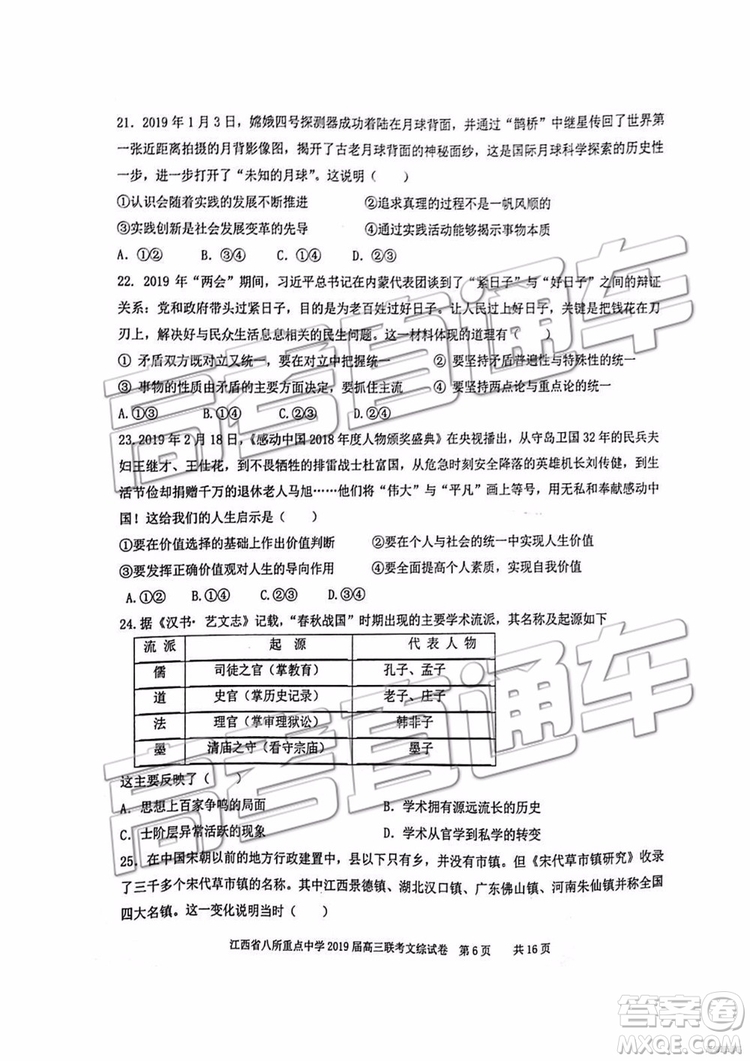 21. 2019 年 1 月 3 日，嫦娥四号探测器成功着陆在月球背面，并通过“鹊桥”中继星传回了世界第
一张近距离拍摄的月背影像图，揭开了古老月球背面的神秘面纱，这是国际月球科学探索的历史性
一步，进一步打开了“未知的月球”。这说明（　　）
①认识会随着实践的发展不断推进　②追求真理的过程不是一帆风顺的
③实践创新是社会发展变革的先导　④通过实践活动能够揭示事物本质
A. ①②　B. ①④　C. ②③　D. ③④
22. 2019 年“两会”期间，习近平总书记在内蒙代表团谈到了“紧日子”与“好日子”之间的辩证
关系：党和政府带头过紧日子，目的是为老百姓过好日子。让人民过上好日子，关键是把钱花在刀
刃上，解决好与民众生活息息相关的民生问题。这一材料体现的道理有（　　）
① 矛盾双方既对立又统一，要在对立中把握统一　② 要坚持矛盾普遍性与特殊性的统一
③ 事物的性质由矛盾的主要方面决定，要抓住主流　④ 要坚持两点论与重点论的统一
A.①③　B.①④　C.②③　D.②④
23. 2019 年 2 月 18 日，《感动中国 2018 年度人物颁奖盛典》在央视播出，从守岛卫国 32 年的民兵夫
妇王继才、王仕花，到不畏牺牲的排雷战士杜富国，从危急关头安全降落的英雄机长刘传健，到生
活节俭却捐赠千万的退休老人马旭……他们将“伟大”与“平凡”画上等号，用无私奉献感动中
国！这给我们的人生启示是（　　）
①要在价值选择的基础上作出价值判断　②要在个人与社会的统一中实现人生价值
③要发挥正确价值观对人生的导向作用　④要全面提高个人素质，实现人生价值
A. ①②　B. ①④　C. ②③　D. ③④
24. 据《汉书·艺文志》记载，“春秋战国”时期出现的主要学术流派，其名称及起源如下
流 派　起 源　代 表 人 物
儒　司徒之官（掌教育）　孔子、孟子
道　史官（掌历史记录）　老子、庄子
法　理官（掌审理狱讼）　韩非子
墨　清庙之守（看守宗庙）　墨子
这主要反映了（　　）
A. 思想上百家争鸣的局面　B. 学术拥有源远流长的历史
C. 士阶层异常活跃的现象　D. 学术从官学到私学的转变
25. 在中国宋朝以前的地方行政建置中，县以下只有乡，并没有市镇。但《宋代草市镇研究》收录
了三千多个宋代草市镇的名称。其中江西景德镇、湖北汉口镇、广东佛山镇、河南朱仙镇并称全国
四大名镇。这一变化说明当时（　　）
江西省八所重点中学 2019 届高三联考文综试卷　第 6 页　共 16 页
高考直通车
高考直通车
答案圈
MXQE.COM